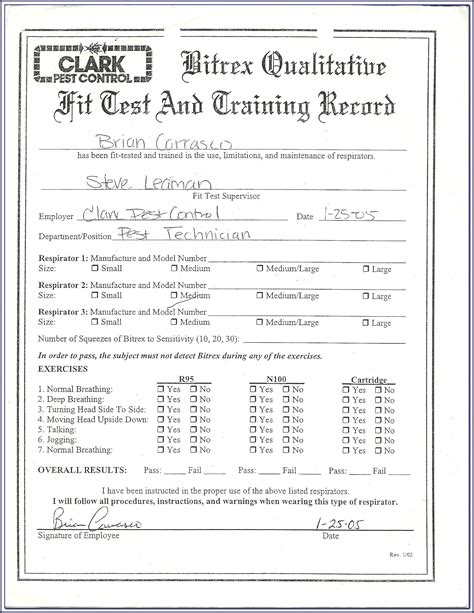 CLARK
PEST CONTROL
Bitrex Qualitative
Fit Test And Training Record
Brian Carrasco
has been fit-tested and trained in the use, limitations, and maintenance of respirators.
Steve Leaman
Fit Test Supervisor
Employer Clark Pest Control Date 1-25-05
Department/Position Pest Technician
Respirator 1: Manufacture and Model Number
Size: ☐ Small ☐ Medium ☐ Medium/Large ☐ Large
Respirator 2: Manufacture and Model Number
Size: ☐ Small ☐ Medium ☐ Medium/Large ☐ Large
Respirator 3: Manufacture and Model Number
Size: ☐ Small ☐ Medium ☐ Medium/Large ☐ Large
Number of Squeezes of Bitrex to Sensitivity (10, 20, 30):
In order to pass, the subject must not detect Bitrex during any of the exercises.
EXERCISES
R95 N100 Cartridge
1. Normal Breathing: ☐ Yes ☐ No ☐ Yes ☐ No ☐ Yes ☐ No
2. Deep Breathing: ☐ Yes ☐ No ☐ Yes ☐ No ☐ Yes ☐ No
3. Turning Head Side To Side: ☐ Yes ☐ No ☐ Yes ☐ No ☐ Yes ☐ No
4. Moving Head Upside Down: ☐ Yes ☐ No ☐ Yes ☐ No ☐ Yes ☐ No
5. Talking: ☐ Yes ☐ No ☐ Yes ☐ No ☐ Yes ☐ No
6. Jogging: ☐ Yes ☐ No ☐ Yes ☐ No ☐ Yes ☐ No
7. Normal Breathing: ☐ Yes ☐ No ☐ Yes ☐ No ☐ Yes ☐ No
OVERALL RESULTS: Pass: ____ Fail ____ Pass: ____ Fail ____ Pass: ____ Fail ____
I have been instructed in the proper use of the above listed respirators.
I will follow all procedures, instructions, and warnings when wearing this type of respirator.
Brian Carrasco 1-25-05
Signature of Employee Date
Rev. 1/02